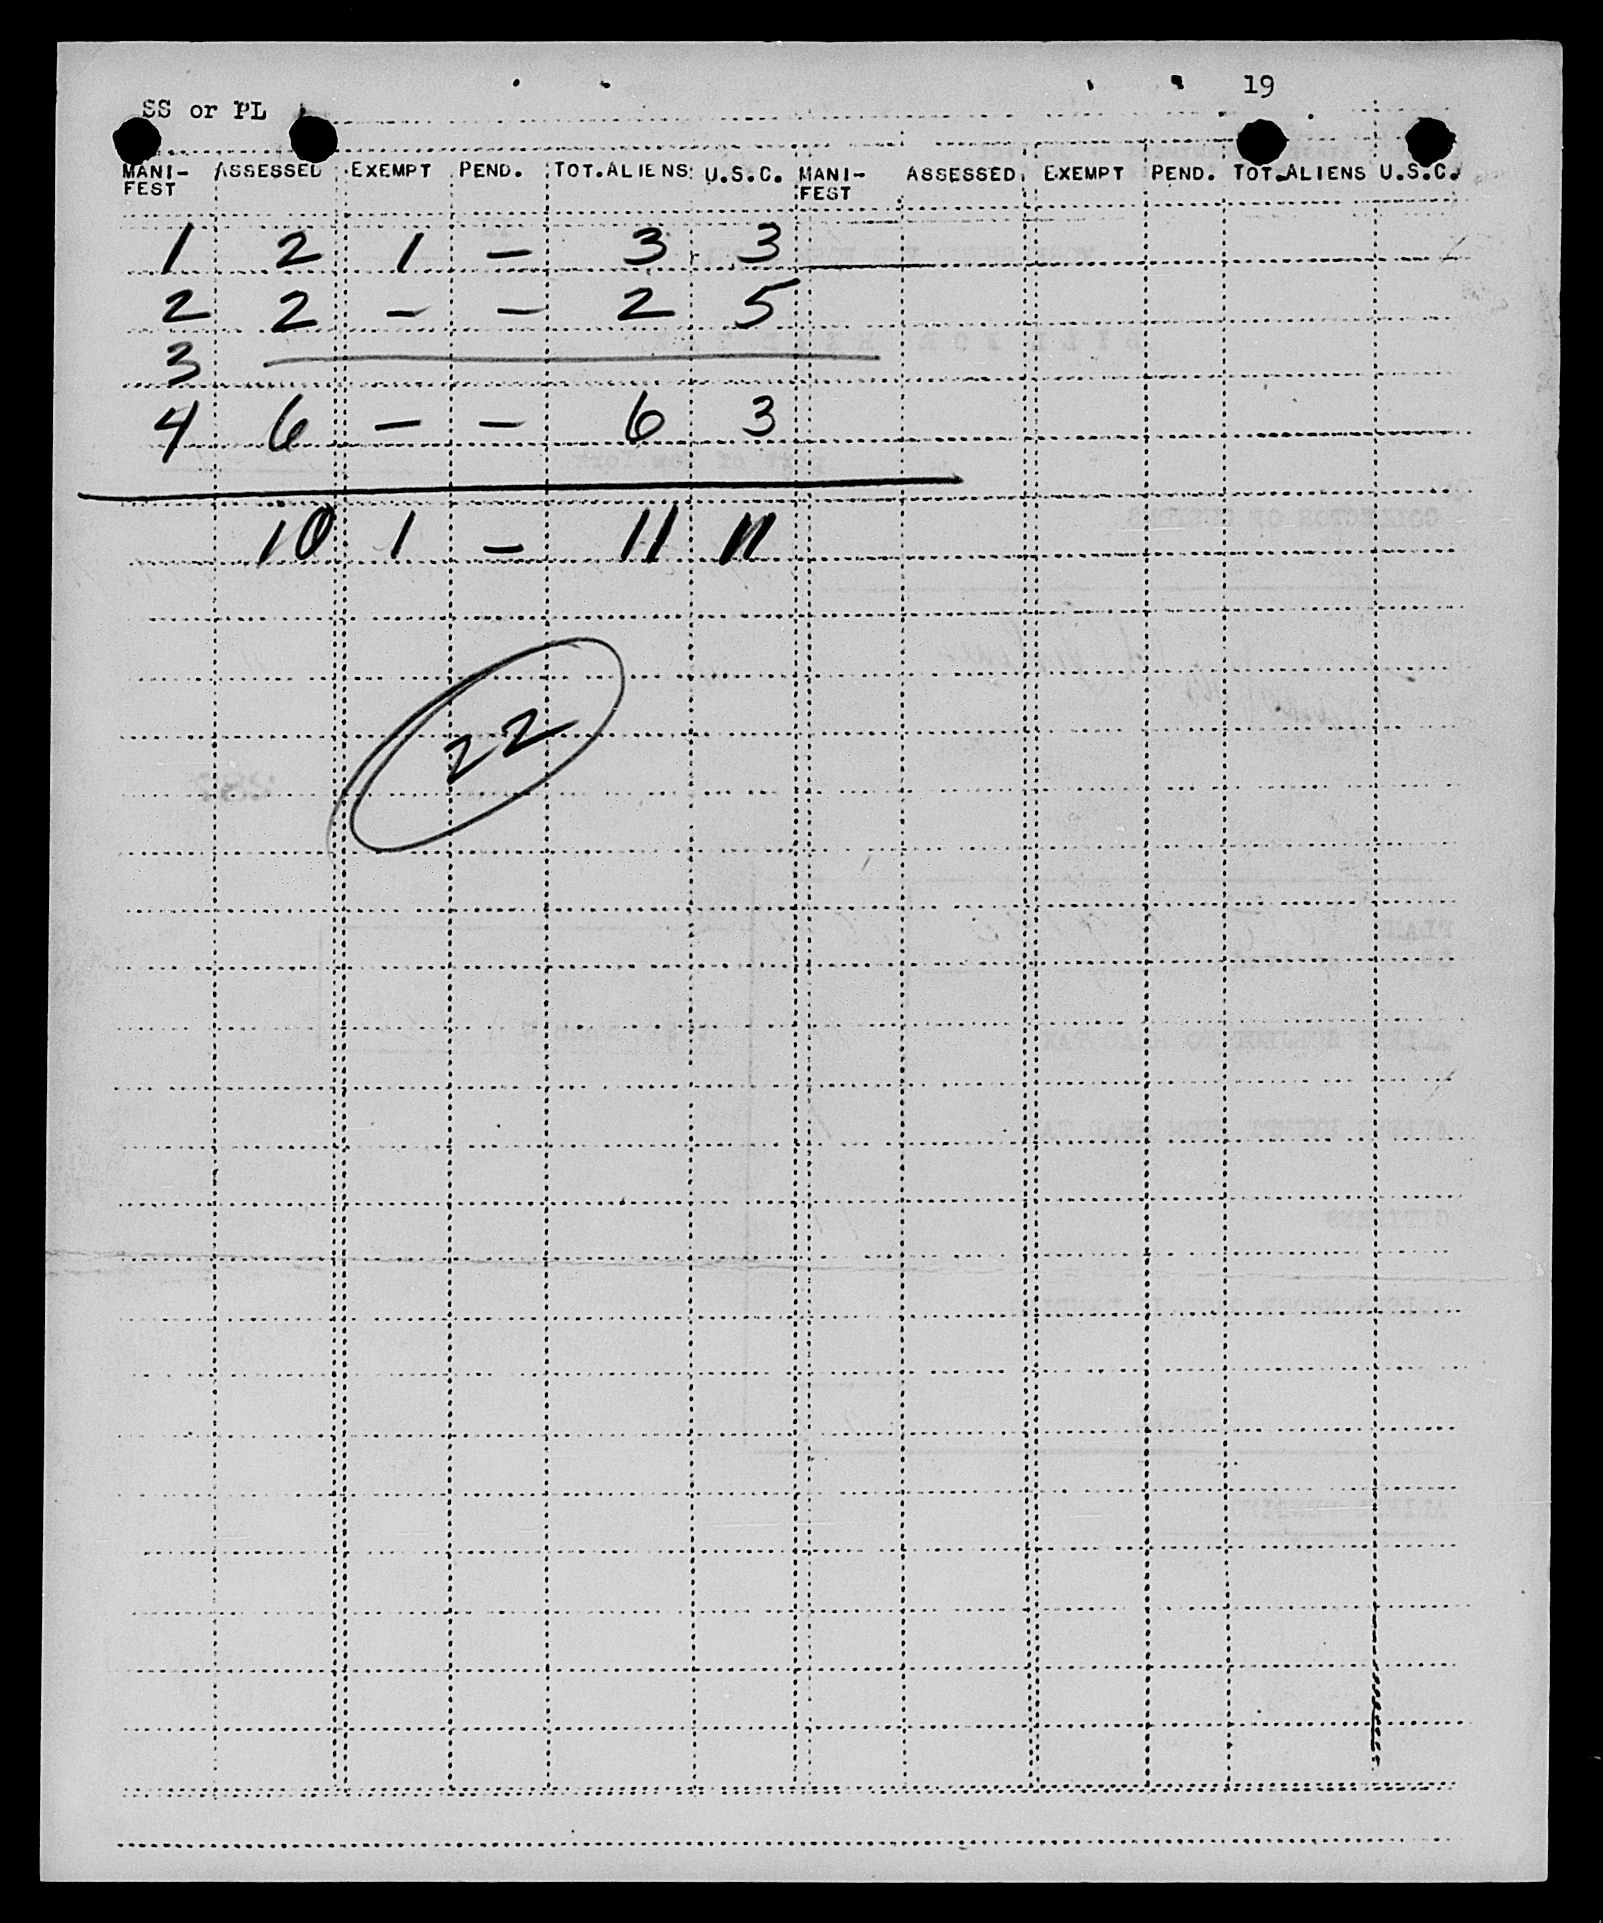 19
SS or PL
MANI- ASSESSED EXEMPT PEND. TOT.ALIENS U.S.C. MANI- ASSESSED EXEMPT PEND. TOT.ALIENS U.S.C.
FEST FEST
1 2 1 - 3 3
2 2 - - 2 5
3
4 6 - - 6 3
10 1 - 11 11
22